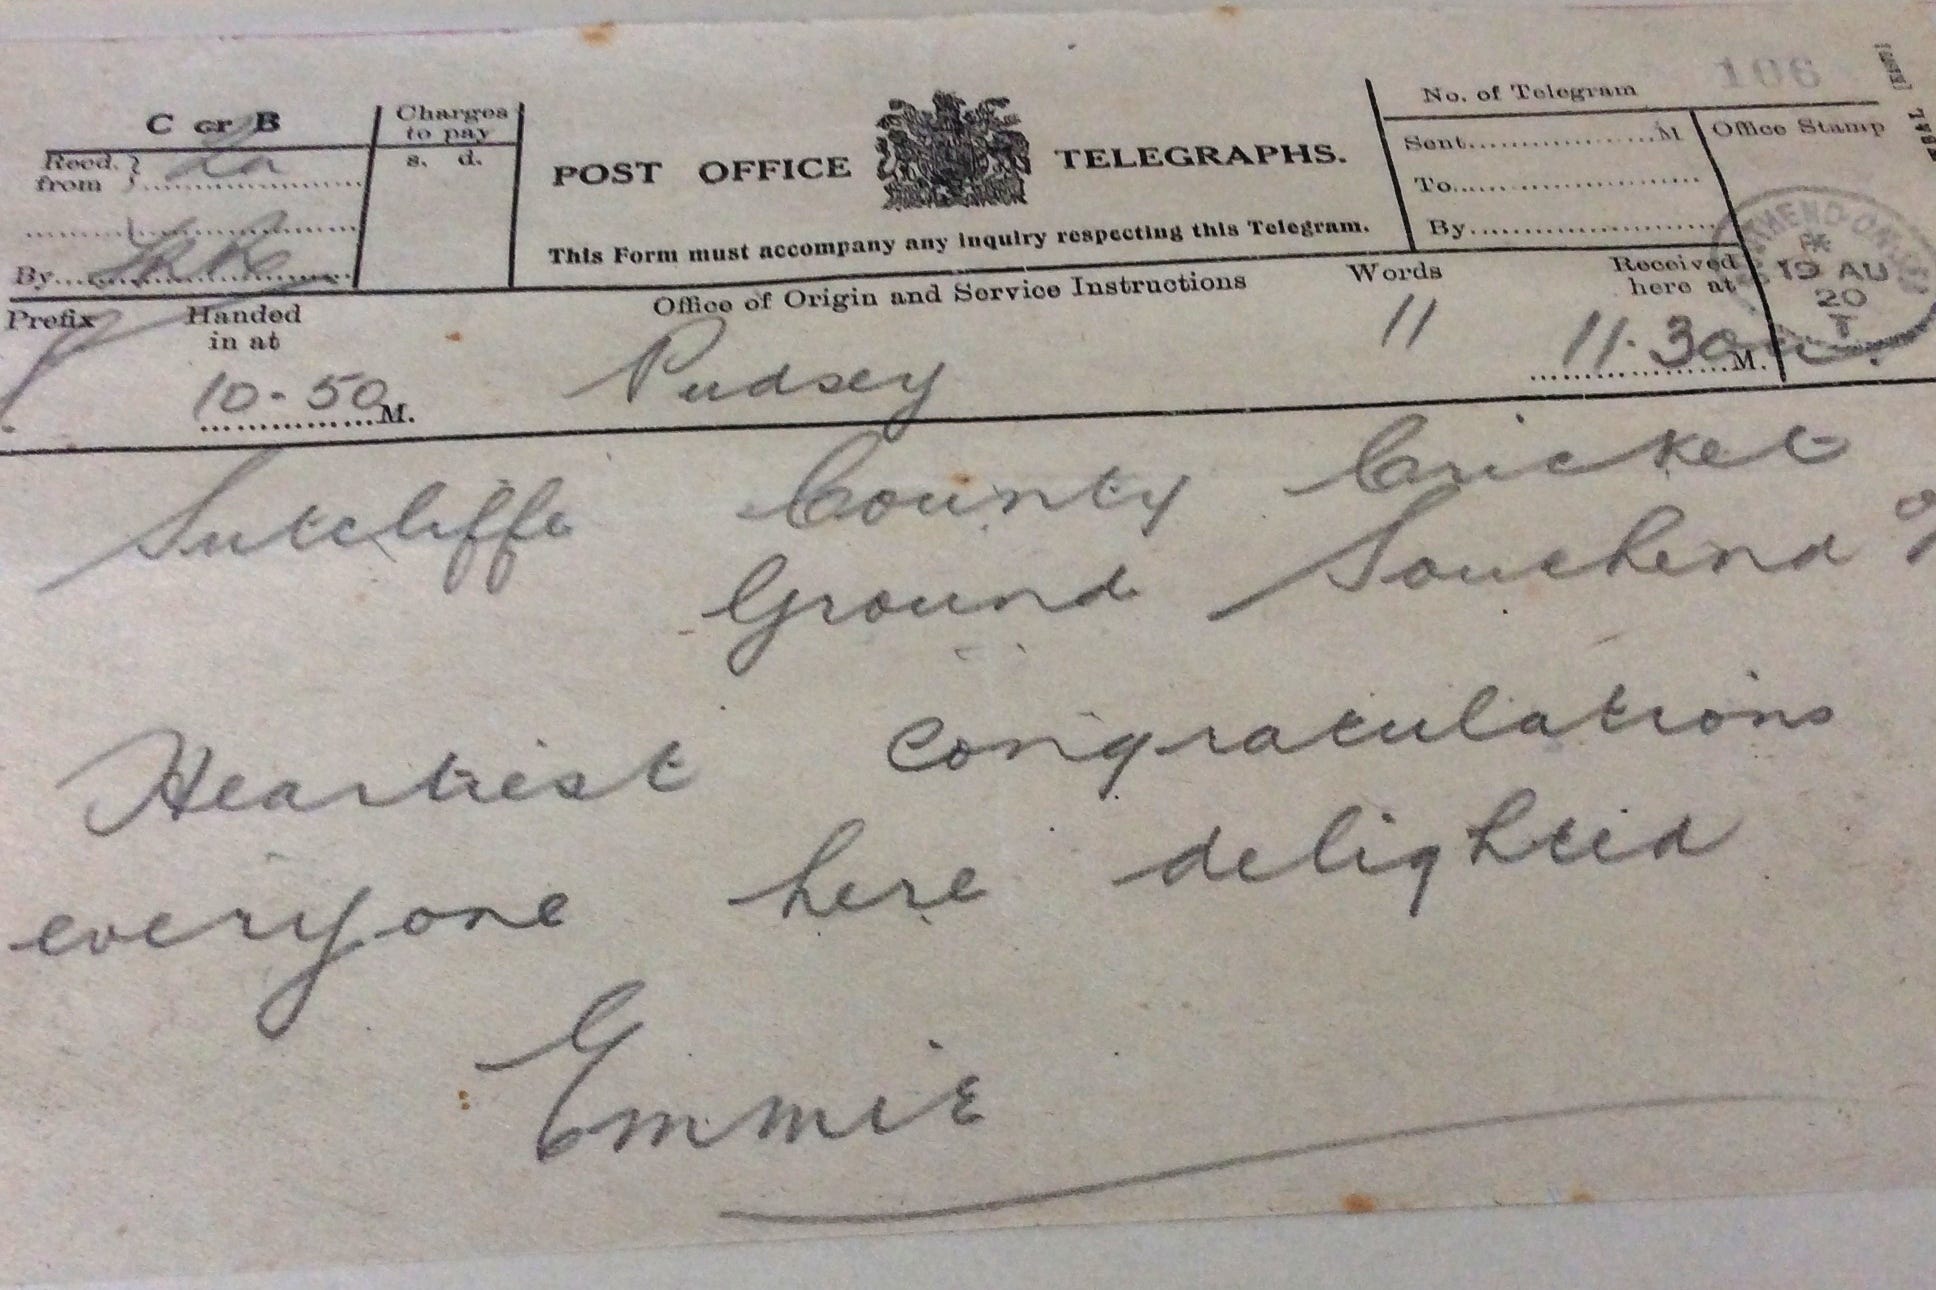 C or B
Charges to pay
s. d.
Recd. from
By
POST OFFICE TELEGRAPHS.
This Form must accompany any inquiry respecting this Telegram.
No. of Telegram 106
Sent M
To
By
Office Stamp
19 AU
20
Prefix
Handed in at
10-50 M.
Office of Origin and Service Instructions
Pudsey
Words
11
Received here at
11.30 M.
Sutcliffe County Cricket
Ground Southend
Heartiest congratulations
everyone here delighted
Emmie